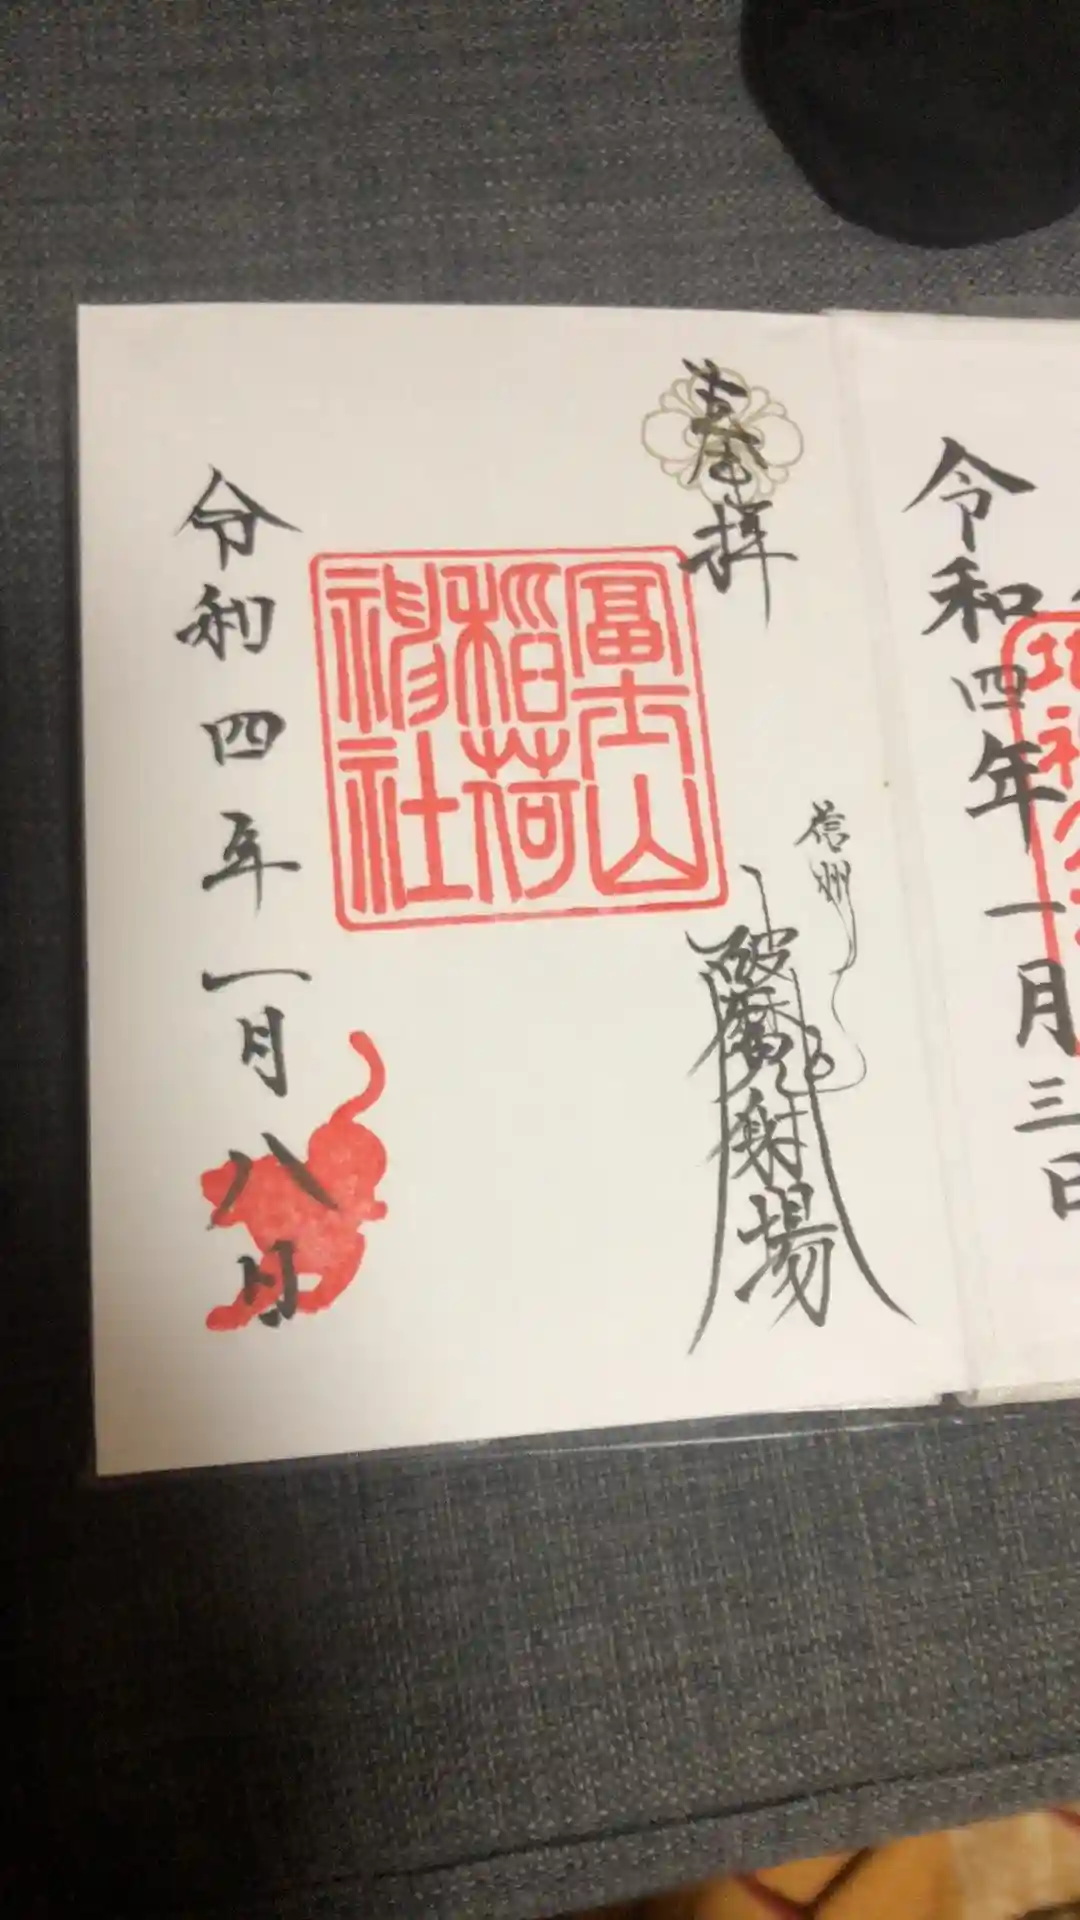 奉拝
信州
破魔射場
冨士山
稲荷
神社
令和四年一月八日
令和四年一月三日